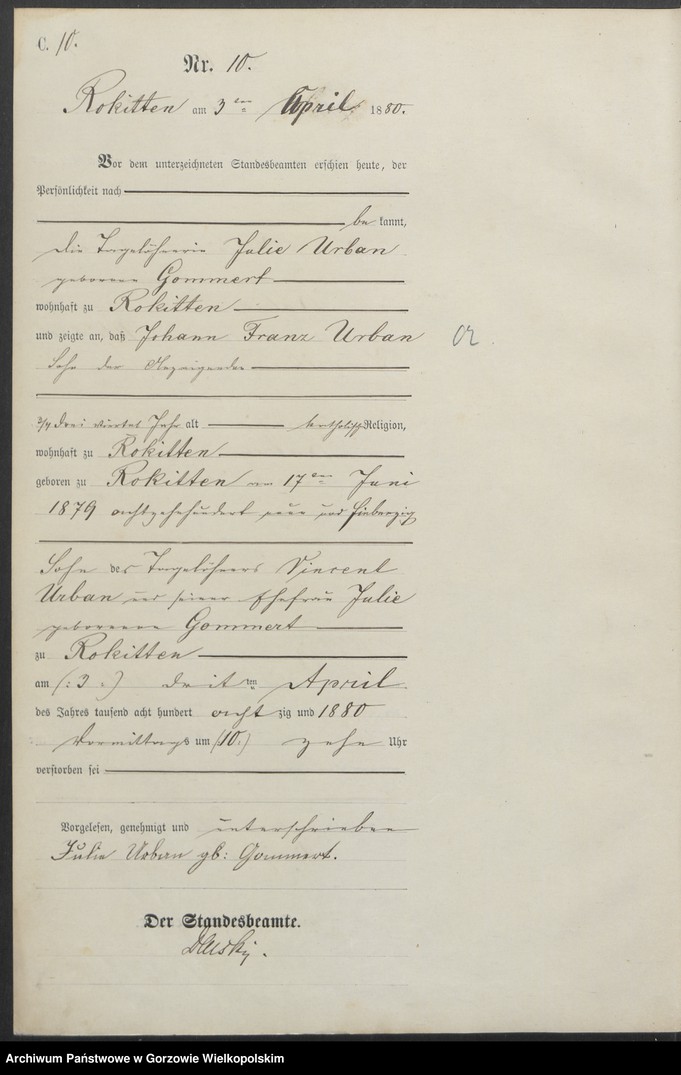 C. 10.
Nr. 10.
Rokitten am 3ten April 1880.
Vor dem unterzeichneten Standesbeamten erschien heute, der
Persönlichkeit nach
be kannt,
die Tagelöhnerin Julie Urban
geborene Gommert
wohnhaft zu Rokitten
und zeigte an, daß Johann Franz Urban
Sohn der Anzeigenden
3/4 drei viertel Jahr alt katholisch Religion,
wohnhaft zu Rokitten
geboren zu Rokitten am 17ten Juni
1879 achtzehnhundert neun und siebenzig
Sohn des Tagelöhners Vincent
Urban und seiner Ehefrau Julie
geborenen Gommert
zu Rokitten
am (: 3 :) dritten April
des Jahres tausend acht hundert acht zig und 1880
Vormittags um (10:) zehn Uhr
verstorben sei
Vorgelesen, genehmigt und unterschrieben
Julie Urban gb: Gommert.
Der Standesbeamte.
Archiwum Państwowe w Gorzowie Wielkopolskim